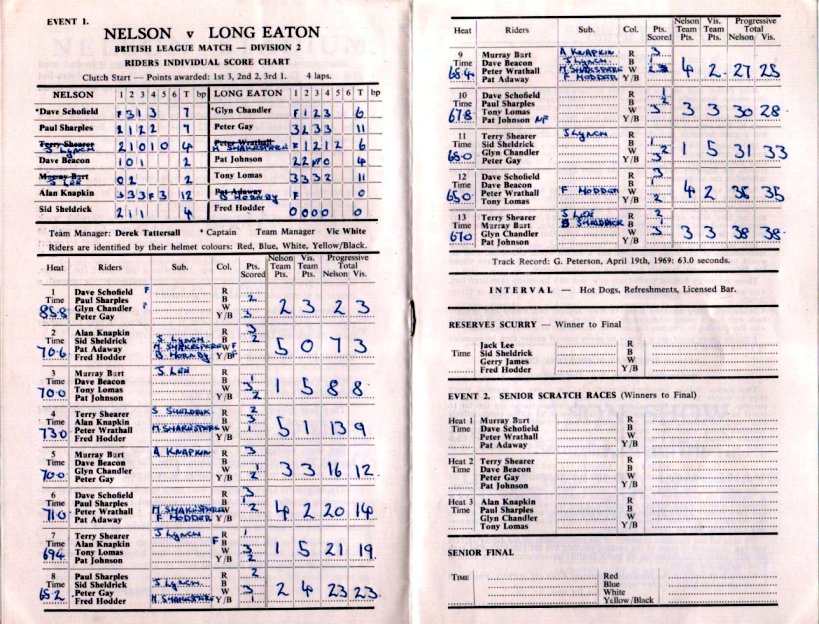 EVENT 1.
NELSON v LONG EATON
BRITISH LEAGUE MATCH — DIVISION 2
RIDERS INDIVIDUAL SCORE CHART
Clutch Start — Points awarded: 1st 3, 2nd 2, 3rd 1. 4 laps.
NELSON 1 2 3 4 5 6 T bp LONG EATON 1 2 3 4 5 6 T bp
*Dave Schofield F 3 1 3 7 *Glyn Chandler F 1 2 3 6
Paul Sharples 2 1 2 2 7 Peter Gay 3 2 3 3 11
Terry Shearer 2 1 0 1 0 4 Peter Wrathall F 1 2 1 2 6
S LYNCH M SHAKESPEARE
Dave Beacon 1 0 1 2 Pat Johnson 2 2 NF 0 4
Murray Burt 0 2 2 Tony Lomas 3 3 3 2 11
S LEE
Alan Knapkin 3 3 3 F 3 12 Pat Adaway F 0
S HORNBY
Sid Sheldrick 2 1 1 4 Fred Hodder 0 0 0 0 0
Team Manager: Derek Tattersall * Captain Team Manager Vic White
Riders are identified by their helmet colours: Red, Blue, White, Yellow/Black.
Heat Riders Sub. Col. Pts. Scored Nelson Team Pts. Vis. Team Pts. Progressive Total Nelson Vis.
1 Dave Schofield F R
Time Paul Sharples B 2
85.8 Glyn Chandler F W 2 3 2 3
Peter Gay Y/B 3
2 Alan Knapkin R 3
Time Sid Sheldrick S LYNCH B 2
70.6 Pat Adaway M SHAKESPEARE W F 5 0 7 3
Fred Hodder B HORNBY Y/B F
3 Murray Burt S LEE R
Time Dave Beacon B 1
70.0 Tony Lomas W 3 1 5 8 8
Pat Johnson Y/B 2
4 Terry Shearer S SHELDRICK R 2
Time Alan Knapkin B 3
73.0 Peter Wrathall M SHAKESPEARE W 1 5 1 13 9
Fred Hodder Y/B
5 Murray Burt A KNAPKIN R 3
Time Dave Beacon B
70.0 Glyn Chandler W 1 3 3 16 12
Peter Gay Y/B 2
6 Dave Schofield R 3
Time Paul Sharples B 1
71.0 Peter Wrathall M SHAKESPEARE W 2 4 2 20 14
Pat Adaway F HODDER Y/B
7 Terry Shearer S LYNCH R 1
Time Alan Knapkin F B
69.4 Tony Lomas W 3 1 5 21 19
Pat Johnson Y/B 2
8 Paul Sharples R 2
Time Sid Sheldrick S LYNCH B
65.2 Peter Gay W 3 2 4 23 23
Fred Hodder M SHAKESPEARE Y/B 1
Heat Riders Sub. Col. Pts. Scored Nelson Team Pts. Vis. Team Pts. Progressive Total Nelson Vis.
9 Murray Burt A KNAPKIN R 3
Time Dave Beacon S LYNCH B
65.4 Peter Wrathall M SHAKESPEARE W 2 4 2 27 25
Pat Adaway F HODDER Y/B
10 Dave Schofield R 1
Time Paul Sharples B 2
67.8 Tony Lomas W 3 3 3 30 28
Pat Johnson NF Y/B
11 Terry Shearer S LYNCH R
Time Sid Sheldrick B 1
65.0 Glyn Chandler W 2 1 5 31 33
Peter Gay Y/B 3
12 Dave Schofield R 3
Time Dave Beacon B 1
65.0 Peter Wrathall F HODDER W 4 2 35 35
Tony Lomas Y/B 2
13 Terry Shearer S LEE R 2
Time Murray Burt S SHELDRICK B 1
67.0 Glyn Chandler W 3 3 3 38 38
Pat Johnson Y/B
Track Record: G. Peterson, April 19th, 1969: 63.0 seconds.
INTERVAL — Hot Dogs, Refreshments, Licensed Bar.
RESERVES SCURRY — Winner to Final
Jack Lee R
Time Sid Sheldrick B
Gerry James W
Fred Hodder Y/B
EVENT 2. SENIOR SCRATCH RACES (Winners to Final)
Heat 1 Murray Burt R
Time Dave Schofield B
Peter Wrathall W
Pat Adaway Y/B
Heat 2 Terry Shearer R
Time Dave Beacon B
Peter Gay W
Pat Johnson Y/B
Heat 3 Alan Knapkin R
Time Paul Sharples B
Glyn Chandler W
Tony Lomas Y/B
SENIOR FINAL
TIME Red
Blue
White
Yellow/Black